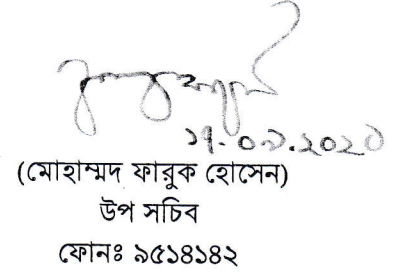 ১৭.০৯.২০২০
(মোহাম্মদ ফারুক হোসেন)
উপ সচিব
ফোনঃ ৯৫১৪১৪২